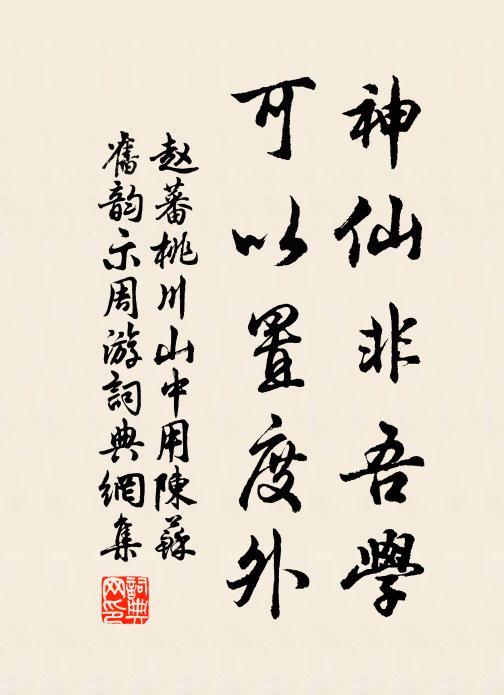 神仙非吾學
可以置度外
赵蕃桃川山中用陳蘇
舊韵示周游詞典網集
詞典网印